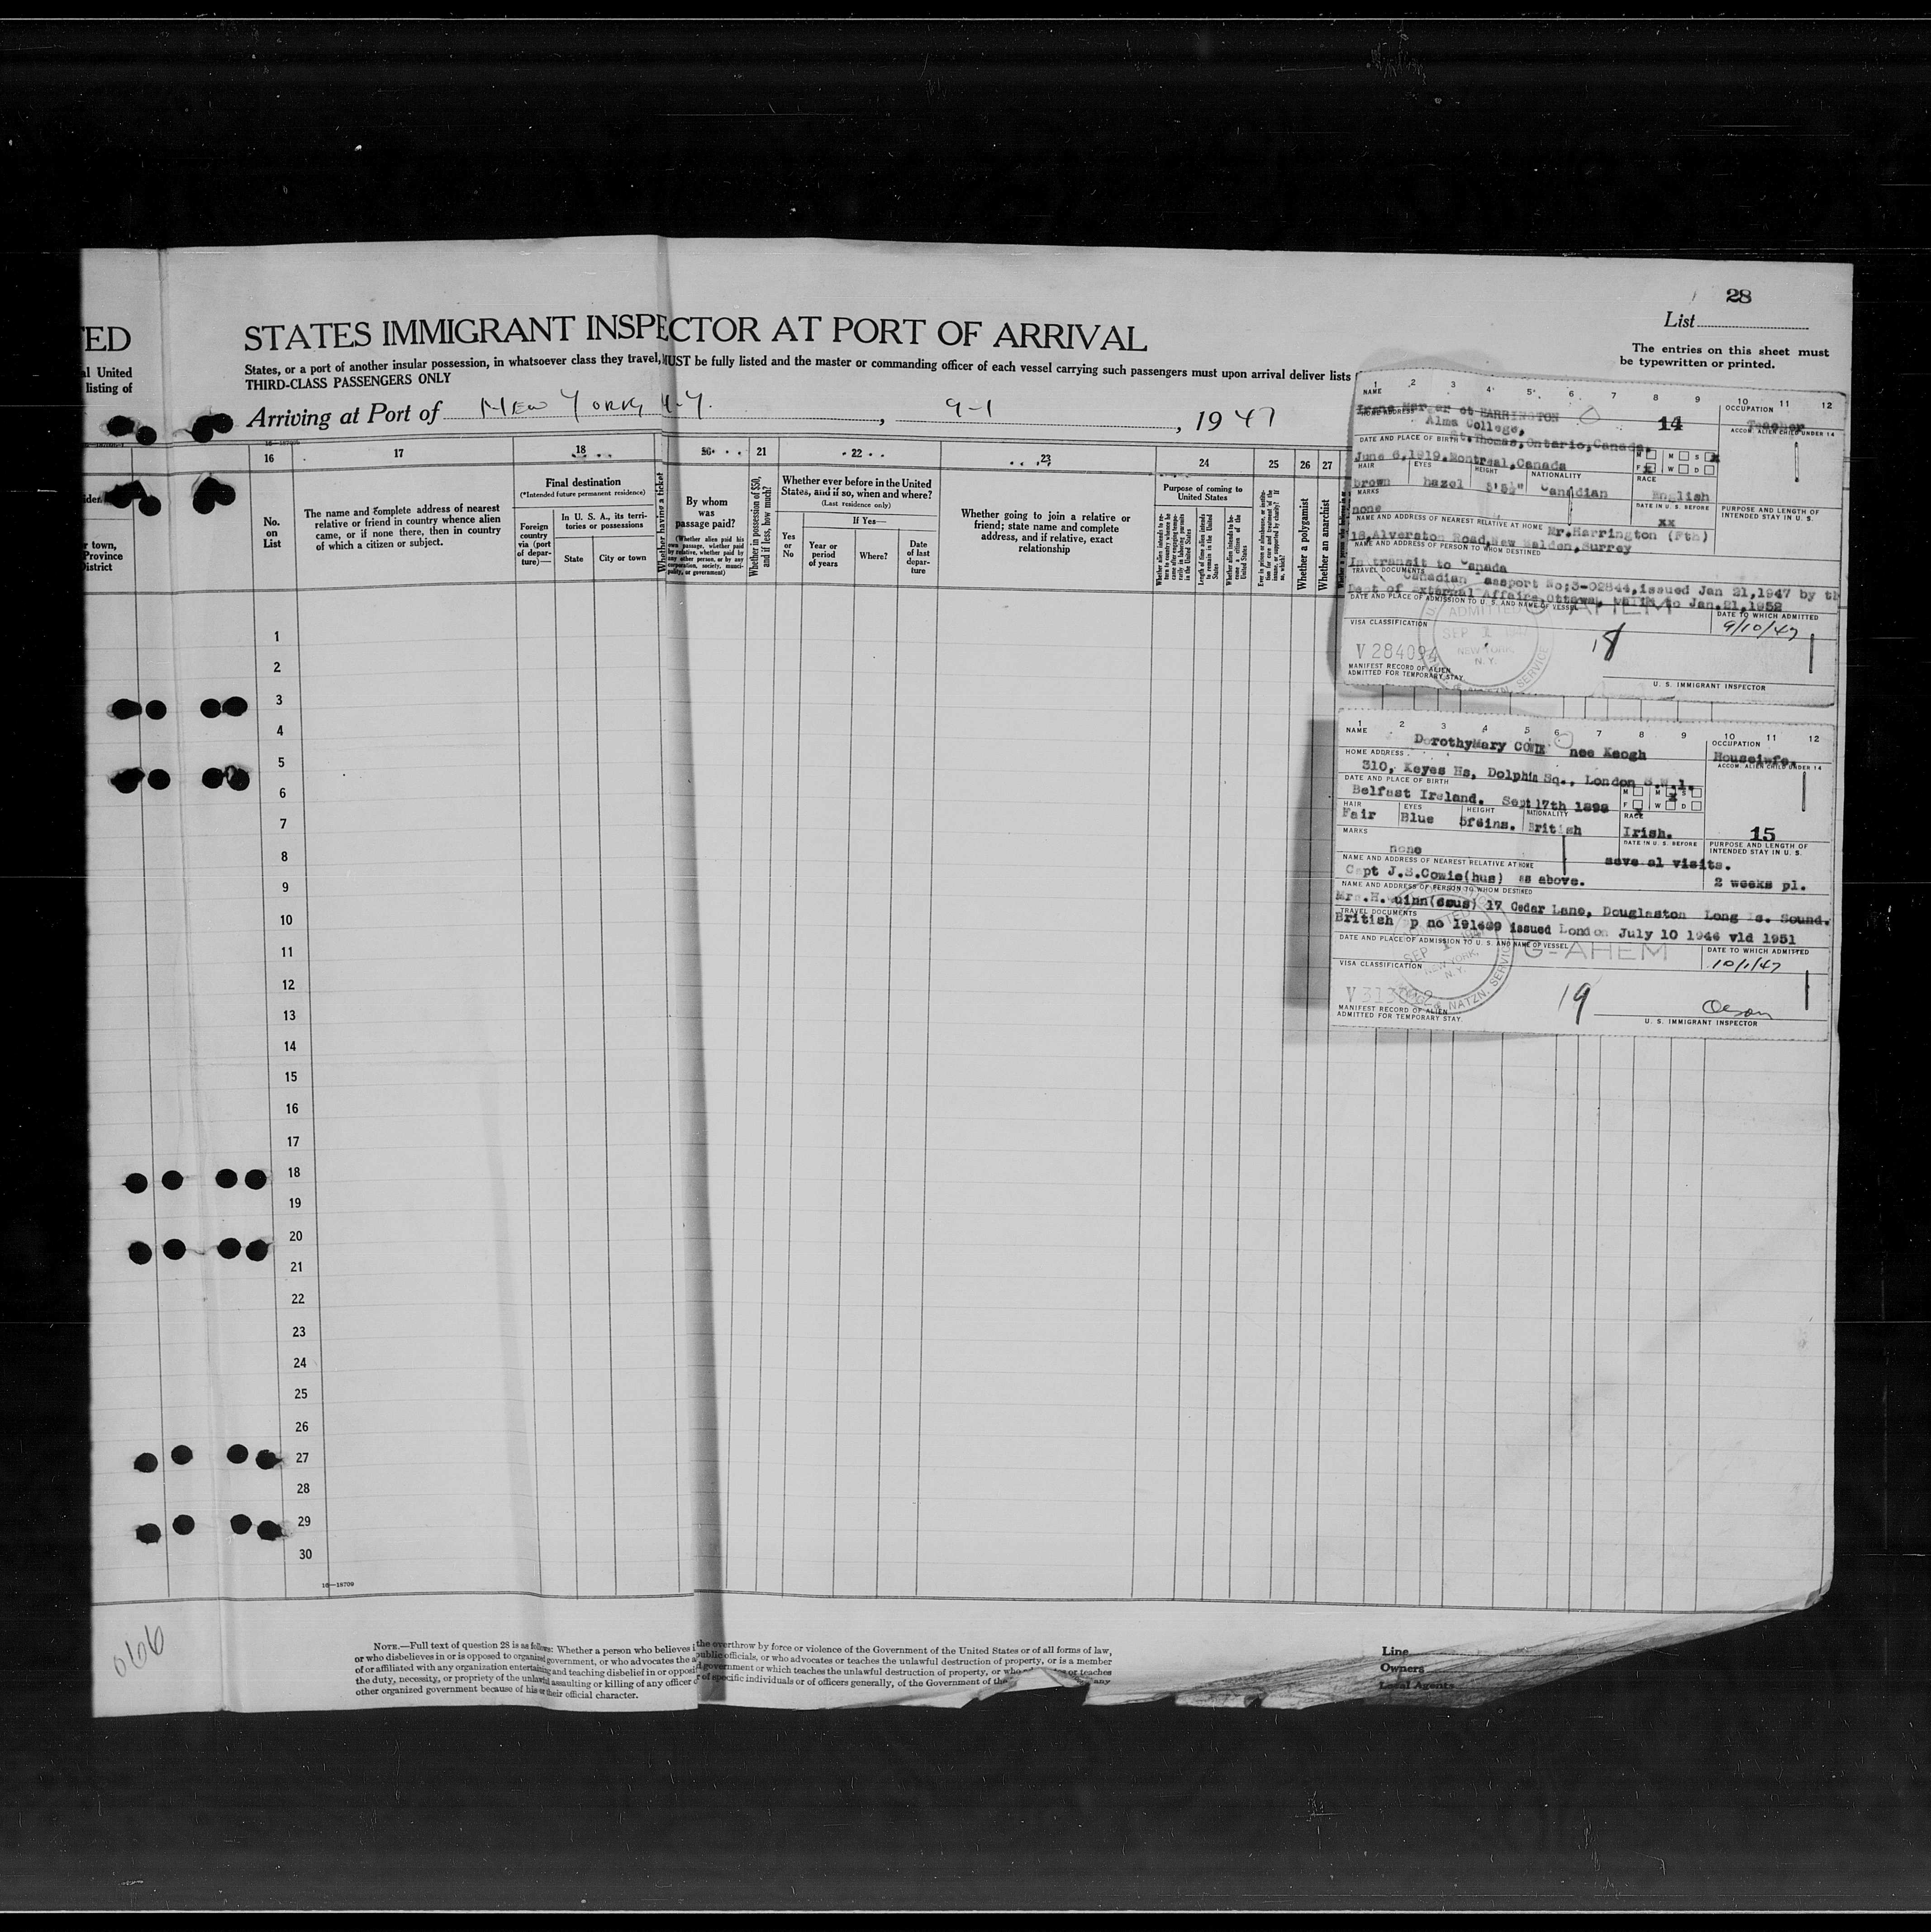 28
List
The entries on this sheet must
be typewritten or printed.
TED
STATES IMMIGRANT INSPECTOR AT PORT OF ARRIVAL
al United
listing of
States, or a port of another insular possession, in whatsoever class they travel, MUST be fully listed and the master or commanding officer of each vessel carrying such passengers must upon arrival deliver lists
THIRD-CLASS PASSENGERS ONLY
Arriving at Port of NEW YORK N.Y. , 9-1 , 1947
16 17 18 21 22 23 24 25 26 27
No.
on
List
The name and complete address of nearest
relative or friend in country whence alien
came, or if none there, then in country
of which a citizen or subject.
Final destination
(*Intended future permanent residence)
Foreign
country
via (port
of depar-
ture)—
In U. S. A., its terri-
tories or possessions
State
City or town
Whether having a ticket
By whom
was
passage paid?
(Whether alien paid his
own passage, whether paid
by relative, whether paid by
any other person, or by any
corporation, society, munici-
pality, or government)
Whether in possession of $50,
and if less, how much?
Whether ever before in the United
States, and if so, when and where?
(Last residence only)
Yes
or
No
If Yes—
Year or
period
of years
Where?
Date
of last
depar-
ture
Whether going to join a relative or
friend; state name and complete
address, and if relative, exact
relationship
Purpose of coming to
United States
Length of time alien intends
to remain in the United
States
Whether a polygamist
Whether an anarchist
r town,
Province
District
1
2
3
4
5
6
7
8
9
10
11
12
13
14
15
16
17
18
19
20
21
22
23
24
25
26
27
28
29
30
16—18709
1 2 3 4 5 6 7 8 9 10 11 12
NAME
HARRINGTON
OCCUPATION
Teacher
14
HOME ADDRESS
Alma College,
St.Thomas,Ontario,Canada.
ACCOM. ALIEN CHILD UNDER 14
DATE AND PLACE OF BIRTH
June 6,1919.Montreal,Canada
M M S X
F X W D
HAIR EYES HEIGHT NATIONALITY RACE
brown hazel 5'5½" Canadian English
MARKS
none
DATE IN U. S. BEFORE
xx
PURPOSE AND LENGTH OF
INTENDED STAY IN U. S.
NAME AND ADDRESS OF NEAREST RELATIVE AT HOME
Mr.Harrington (Fth)
18,Alverston Road,New Malden,Surrey
NAME AND ADDRESS OF PERSON TO WHOM DESTINED
In transit to Canada
TRAVEL DOCUMENTS
Canadian assport No;3-02844,issued Jan 21,1947 by th
Dept of External Affairs,Ottawa, valid to Jan.21,1952
DATE AND PLACE OF ADMISSION TO U. S. AND NAME OF VESSEL
G-AHEM
ADMITTED
SEP 1 1947
NEW YORK,
N. Y.
SERVICE
DATE TO WHICH ADMITTED
9/10/47
VISA CLASSIFICATION
V 284094
18
MANIFEST RECORD OF ALIEN
ADMITTED FOR TEMPORARY STAY
U. S. IMMIGRANT INSPECTOR
1 2 3 4 5 6 7 8 9 10 11 12
NAME
DorothyMary COWIE nee Keogh
OCCUPATION
Houseiwfe.
HOME ADDRESS
310, Keyes Hs, Dolphin Sq., London S.W.1.
ACCOM. ALIEN CHILD UNDER 14
DATE AND PLACE OF BIRTH
Belfast Ireland. Sept 17th 1898
M M S
F W D
HAIR EYES HEIGHT NATIONALITY RACE
Fair Blue 5f6ins. British Irish.
15
MARKS
none
DATE IN U. S. BEFORE
seve al visits.
PURPOSE AND LENGTH OF
INTENDED STAY IN U. S.
2 weeks pl.
NAME AND ADDRESS OF NEAREST RELATIVE AT HOME
Capt J.S.Cowie(hus) as above.
NAME AND ADDRESS OF PERSON TO WHOM DESTINED
Mrs.H. uinn(cous) 17 Cedar Lane, Douglaston Long Is. Sound.
TRAVEL DOCUMENTS
British p no 191699 issued London July 10 1946 vld 1951
DATE AND PLACE OF ADMISSION TO U. S. AND NAME OF VESSEL
G-AHEM
SEP 1
NEW YORK,
N.Y.
NATZN. SERVICE
DATE TO WHICH ADMITTED
10/1/47
VISA CLASSIFICATION
19
Olson
MANIFEST RECORD OF ALIEN
ADMITTED FOR TEMPORARY STAY.
U. S. IMMIGRANT INSPECTOR
066
NOTE.—Full text of question 28 is as follows: Whether a person who believes i the overthrow by force or violence of the Government of the United States or of all forms of law,
or who disbelieves in or is opposed to organized government, or who advocates the a public officials, or who advocates or teaches the unlawful destruction of property, or is a member
of or affiliated with any organization entertaining and teaching disbelief in or opposi d government or which teaches the unlawful destruction of property, or who or teaches
the duty, necessity, or propriety of the unlawful assaulting or killing of any officer o r of specific individuals or of officers generally, of the Government of the any
other organized government because of his or their official character.
Line
Owners
Local Agents